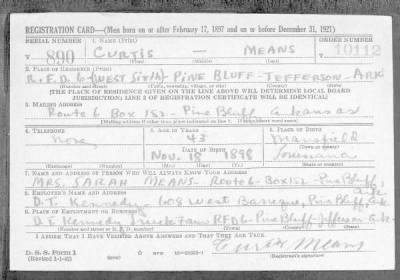 REGISTRATION CARD—(Men born on or after February 17, 1897 and on or before December 31, 1921)
SERIAL NUMBER 1. NAME (Print) ORDER NUMBER
890 CURTIS — MEANS 10112
(First) (Middle) (Last)
2. PLACE OF RESIDENCE (Print)
R.F.D. 6-(WEST SIXTH) PINE BLUFF-JEFFERSON-ARK
(Number and street) (Town, township, village, or city) (County) (State)
[THE PLACE OF RESIDENCE GIVEN ON THE LINE ABOVE WILL DETERMINE LOCAL BOARD
JURISDICTION; LINE 2 OF REGISTRATION CERTIFICATE WILL BE IDENTICAL]
3. MAILING ADDRESS
Route 6 Box 152 - Pine Bluff Arkansas
[Mailing address if other than place indicated on line 2. If same insert word same]
4. TELEPHONE 5. AGE IN YEARS 6. PLACE OF BIRTH
None 43 Mansfield
DATE OF BIRTH (Town or county)
Nov. 18 1898 Louisiana
(Exchange) (Number) (Mo.) (Day) (Yr.) (State or country)
7. NAME AND ADDRESS OF PERSON WHO WILL ALWAYS KNOW YOUR ADDRESS
MRS. SARAH MEANS-Route 6-Box 152-Pine Bluff,
8. EMPLOYER'S NAME AND ADDRESS
D.T. Kennedy 608 West Barraque, Pine Bluff, Ark
9. PLACE OF EMPLOYMENT OR BUSINESS
Kennedy Truck Farm RFD 6-Pine Bluff-Jefferson-Ark.
(Number and street or R. F. D. number) (Town) (County) (State)
I AFFIRM THAT I HAVE VERIFIED ABOVE ANSWERS AND THAT THEY ARE TRUE.
D. S. S. Form 1
(Revised 1-1-42) (over) Curtis Means
(Registrant's signature)